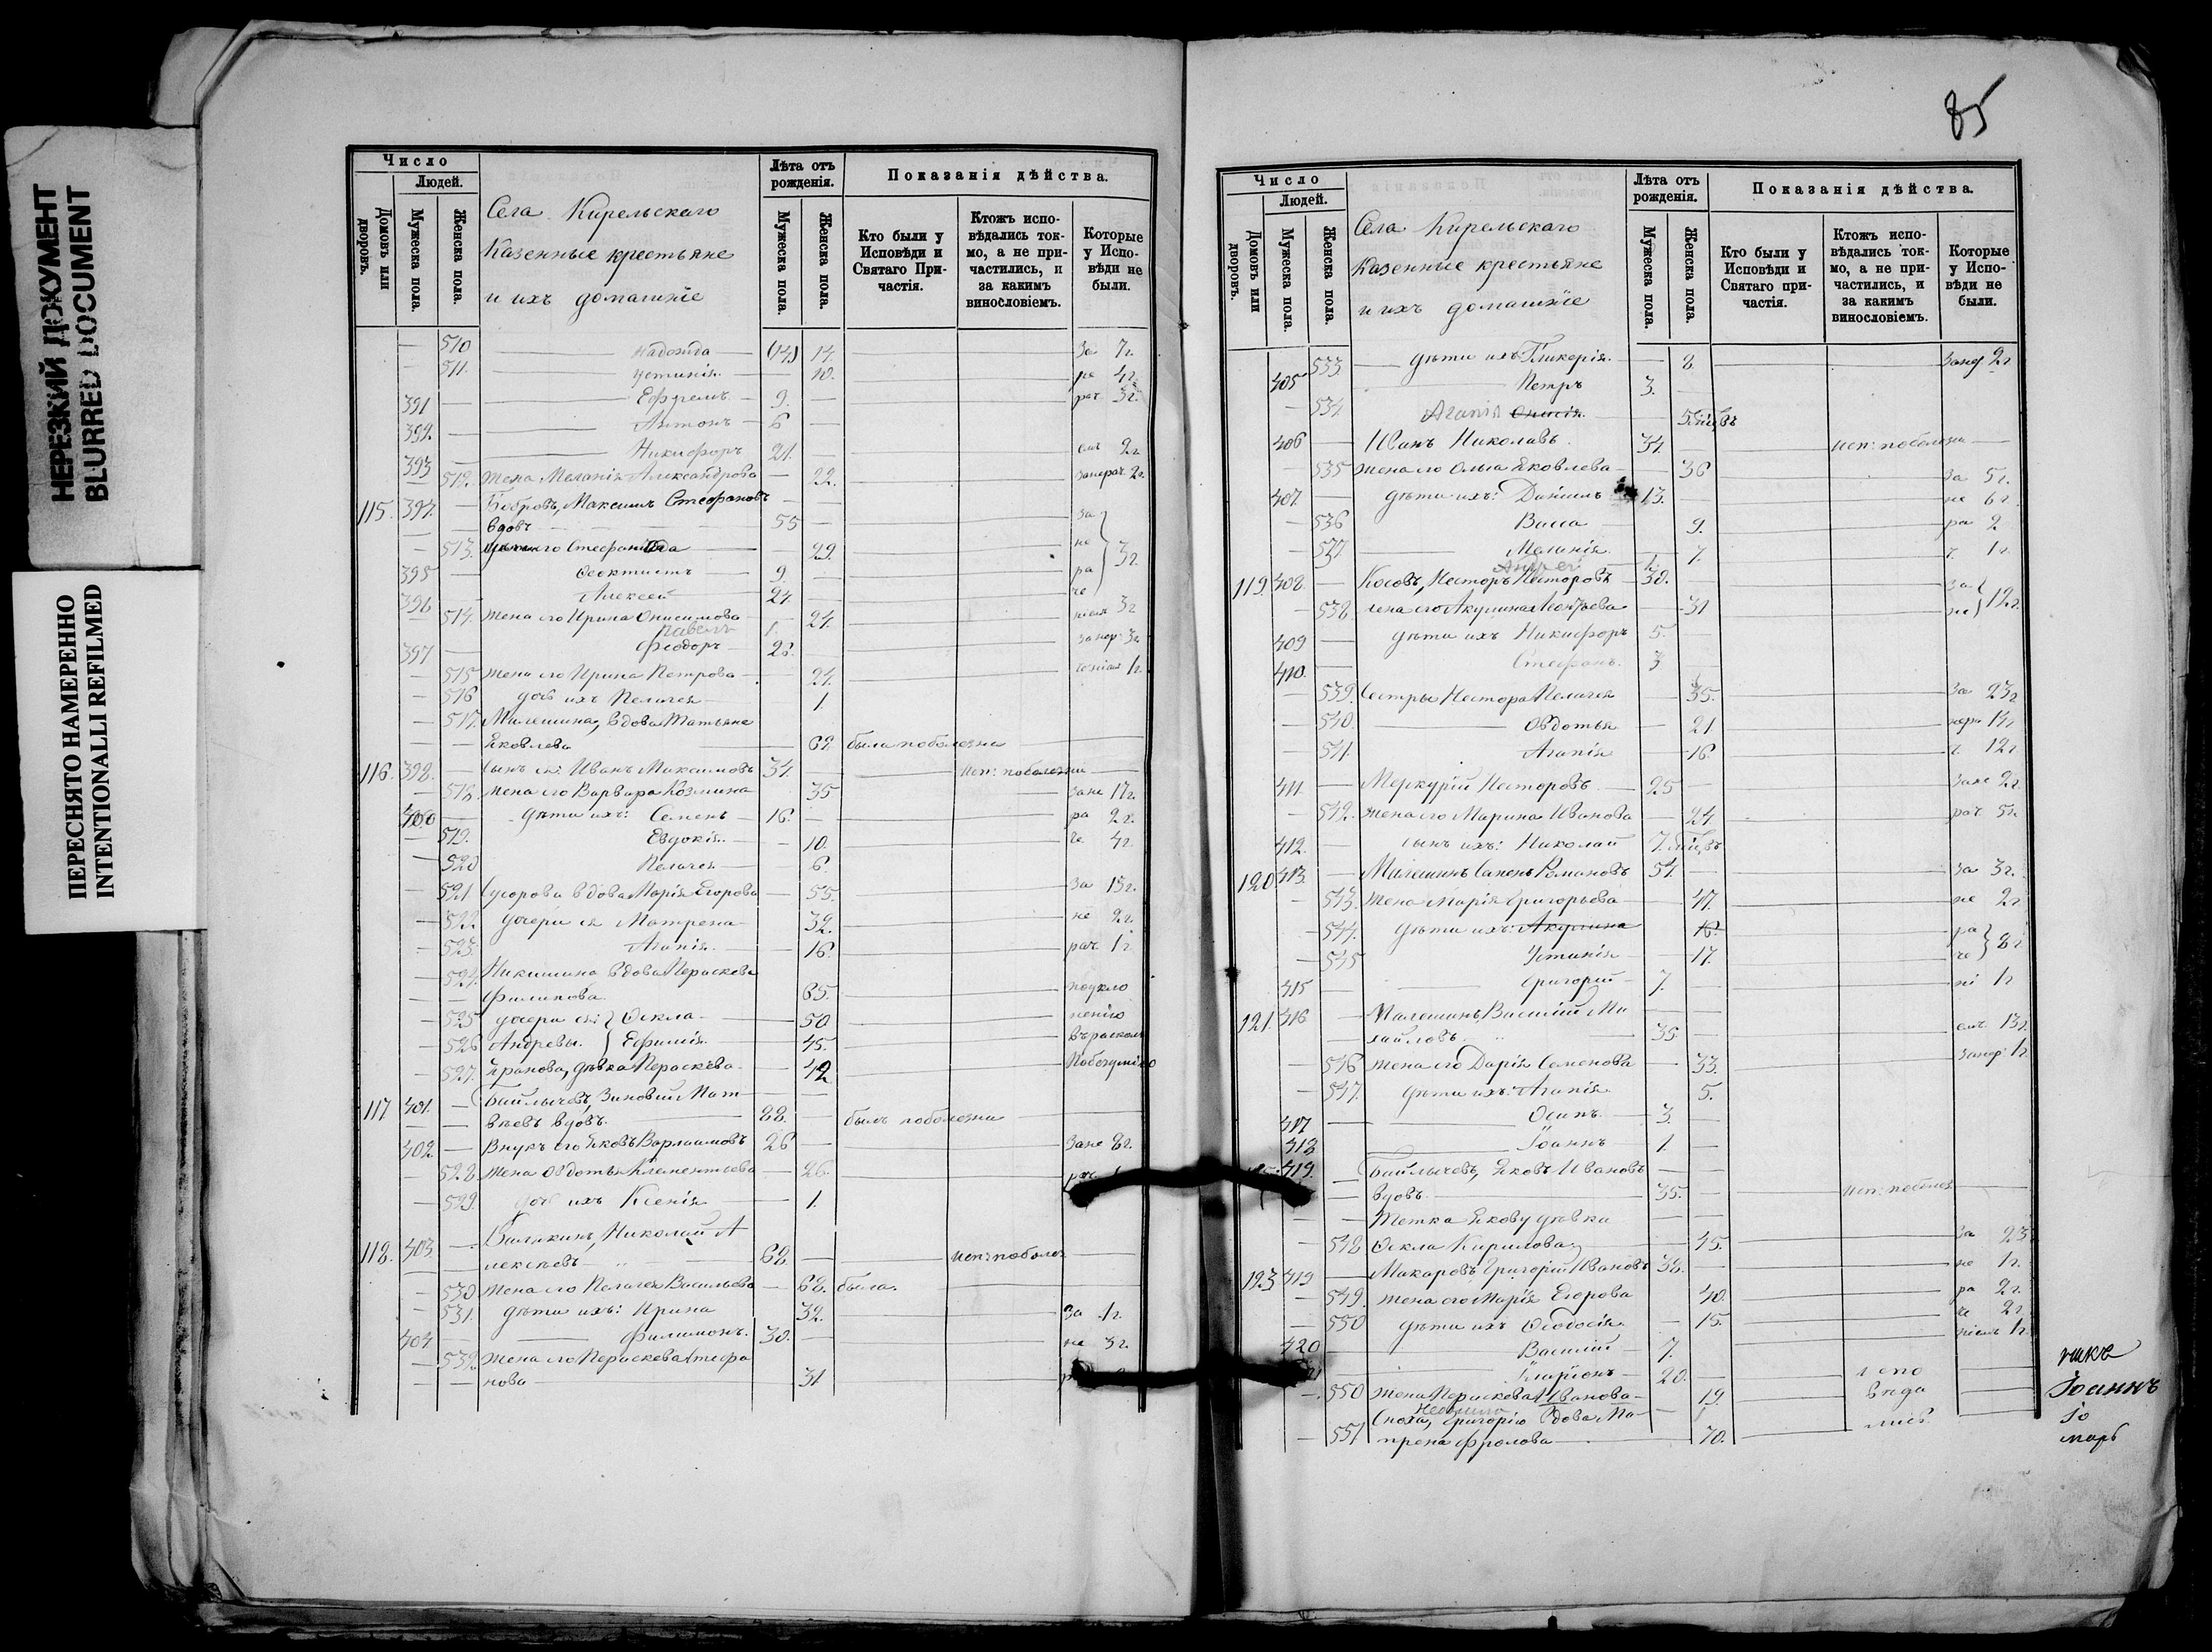 НЕРЕЗКИЙ ДОКУМЕНТ
BLURRED DOCUMENT
ПЕРЕСНЯТО НАМЕРЕННО
INTENTIONALLI REFILMED
Число
Людей.
Домовъ или дворовъ.
Мужеска пола.
Женска пола.
Села Кирельскаго
Казенные крестьяне
и ихъ домашніе
Лѣта отъ рожденія.
Мужеска пола.
Женска пола.
Показанія дѣйства.
Кто были у Исповѣди и Святаго Причастія.
Ктожъ исповѣдались токмо, а не причастились, и за какимъ винословіемъ.
Которые у Исповѣди не были.
510 Надежда (14) 14. За 7г.
511. Устинія 10. не 4г.
391 Ефремъ 9. рач. 3г.
392 Антонъ 6
393 Никифоръ 21. 2г.
512. жена Меланія Александрова 22. 2г.
115. 394. Бобровъ, Максимъ Стефановъ
вдовъ 55 За
513. Стефанида 29. не 3г.
395 Феоктистъ 9. ра
396 Алексей 24. че
514. жена его Ирина Онисимова 24. ніем 3г
Павелъ 1.
397 Феодоръ 28.
515 жена его Ирина Петрова 24. 1г.
516 дочь ихъ Пелагея 1
517. Милешина, вдова Татьяна
Яковлева 62 была по болезни
116. 398. Сынъ ея: Иванъ Максимовъ 34. Исп: по болезни
518. жена его Варвара Козмина 35 Зане 17г.
400 дѣти ихъ: Семенъ 16. ра 2г.
519. Евдокія 10. че 4г.
520 Пелагея 6.
521 вдова Марія Егорова 55. За 15г.
522 дочери ея Матрена 32. не 2г.
523. Агапія 16. рач. 1г.
524. Никишина вдова Параскева
Филипова 85. по укло
525 дочери ея: Фекла 50 ненію
526 Андревы. Ефимія 45. въ расколъ
527. дѣвка Параскева 42
117 401. Байлычевъ, Зиновий Мат
вѣевъ вдовъ. 88. былъ по болезни
402 Внукъ его Яковъ Варлаамовъ 26 Зане 8г.
528 жена Овдотья Клементьева 26.
529. дочь ихъ Ксенія 1.
118. 403. Валякинъ, Николай А
лексѣевъ 68. Исп: по болез
530 жена его Пелагея Васильева 68. была.
531. дѣти ихъ: Ирина 32. За 1г.
404 Филимонъ. 30. не 3г.
532 жена его Параскева Стефа
нова 31
85
Число
Людей.
Домовъ или дворовъ.
Мужеска пола.
Женска пола.
Села Кирельскаго
Казенные крестьяне
и ихъ домашніе
Лѣта отъ рожденія.
Мужеска пола.
Женска пола.
Показанія дѣйства.
Кто были у Исповѣди и Святаго причастія.
Ктожъ исповѣдались токмо, а не причастились, и за какимъ винословіемъ.
Которые у Исповѣди не были.
533. дѣти ихъ Гликерія 8. 2г
405 Петръ 3.
534 Агапія
406 Иванъ Николавъ. 34. исп: по болезни
535 жена его Ольга Яковлева 36 За 5г.
407. дѣти ихъ: Даніилъ 13. не 6г.
536 Васса 9. ра 2
537. Меланія 7. ч. 1г.
Андрей 1.
119. 408. Косовъ, Несторъ Несторовъ 38. За
538 жена его Акулина 31 не 12г.
409 дѣти ихъ Никифоръ 5.
410. Стефанъ. 3
539. Сестры Нестора Пелагея 35. За 23г
540. Овдотья 21 14г
541. Агапія 16. 12г
411. Меркурій Несторовъ 25 Зане 2г.
542. жена его Марина Иванова 24 рач. 5г.
412. сынъ ихъ: Николай
120 413. Милешинъ Романовъ 54. За 3г.
543. жена Марія Григорьева 47. не 2г.
544. дѣти ихъ: Акулина 18. ра
545 Устинія 17. че 8г
415 Григорий 7. ні 1г
121. 416 Малешинъ, Василий Ми
хайловъ 35. 13г.
546 жена его Дарія Семенова 33. 1г.
547. дѣти ихъ: Агапія 5.
417 Осипъ 3.
418 Іоаннъ 1.
419. Байлычевъ, Яковъ Ивановъ
вдовъ 35. исп: по болез
Тетка Якову дѣвка
548 Фекла Кирилова 45. За 25
123 419 Макаровъ Григорій Ивановъ 38. не 1г.
549. жена его Марія Егорова 40. ра 2г.
550 дѣти ихъ Феодосія 15. че 2г.
420 Василий 7. ніем 1г.
Иларіонъ 20. испо
550 жена Параскева Иванова 19. вѣда
Григорію вдова Ма лись.
551 трена Фролова 70.
Іоаннъ